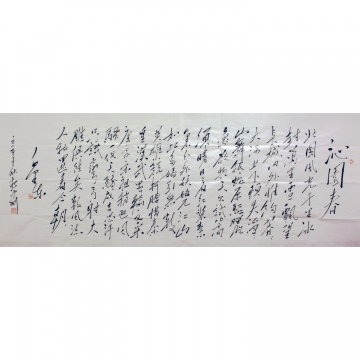 沁园春
北国风光千里冰
封万里雪飘望
长城内外惟余莽莽
大河上下顿失滔
滔山舞银蛇原驰蜡
象欲与天公试比高
须晴日看红装素
裹分外妖娆江山
如此多娇引无数
英雄竞折腰惜秦
皇汉武略输文采
唐宗宋祖稍逊风
骚一代天骄成吉思汗
只识弯弓射大
雕俱往矣数风流
人物还看今朝
毛泽东